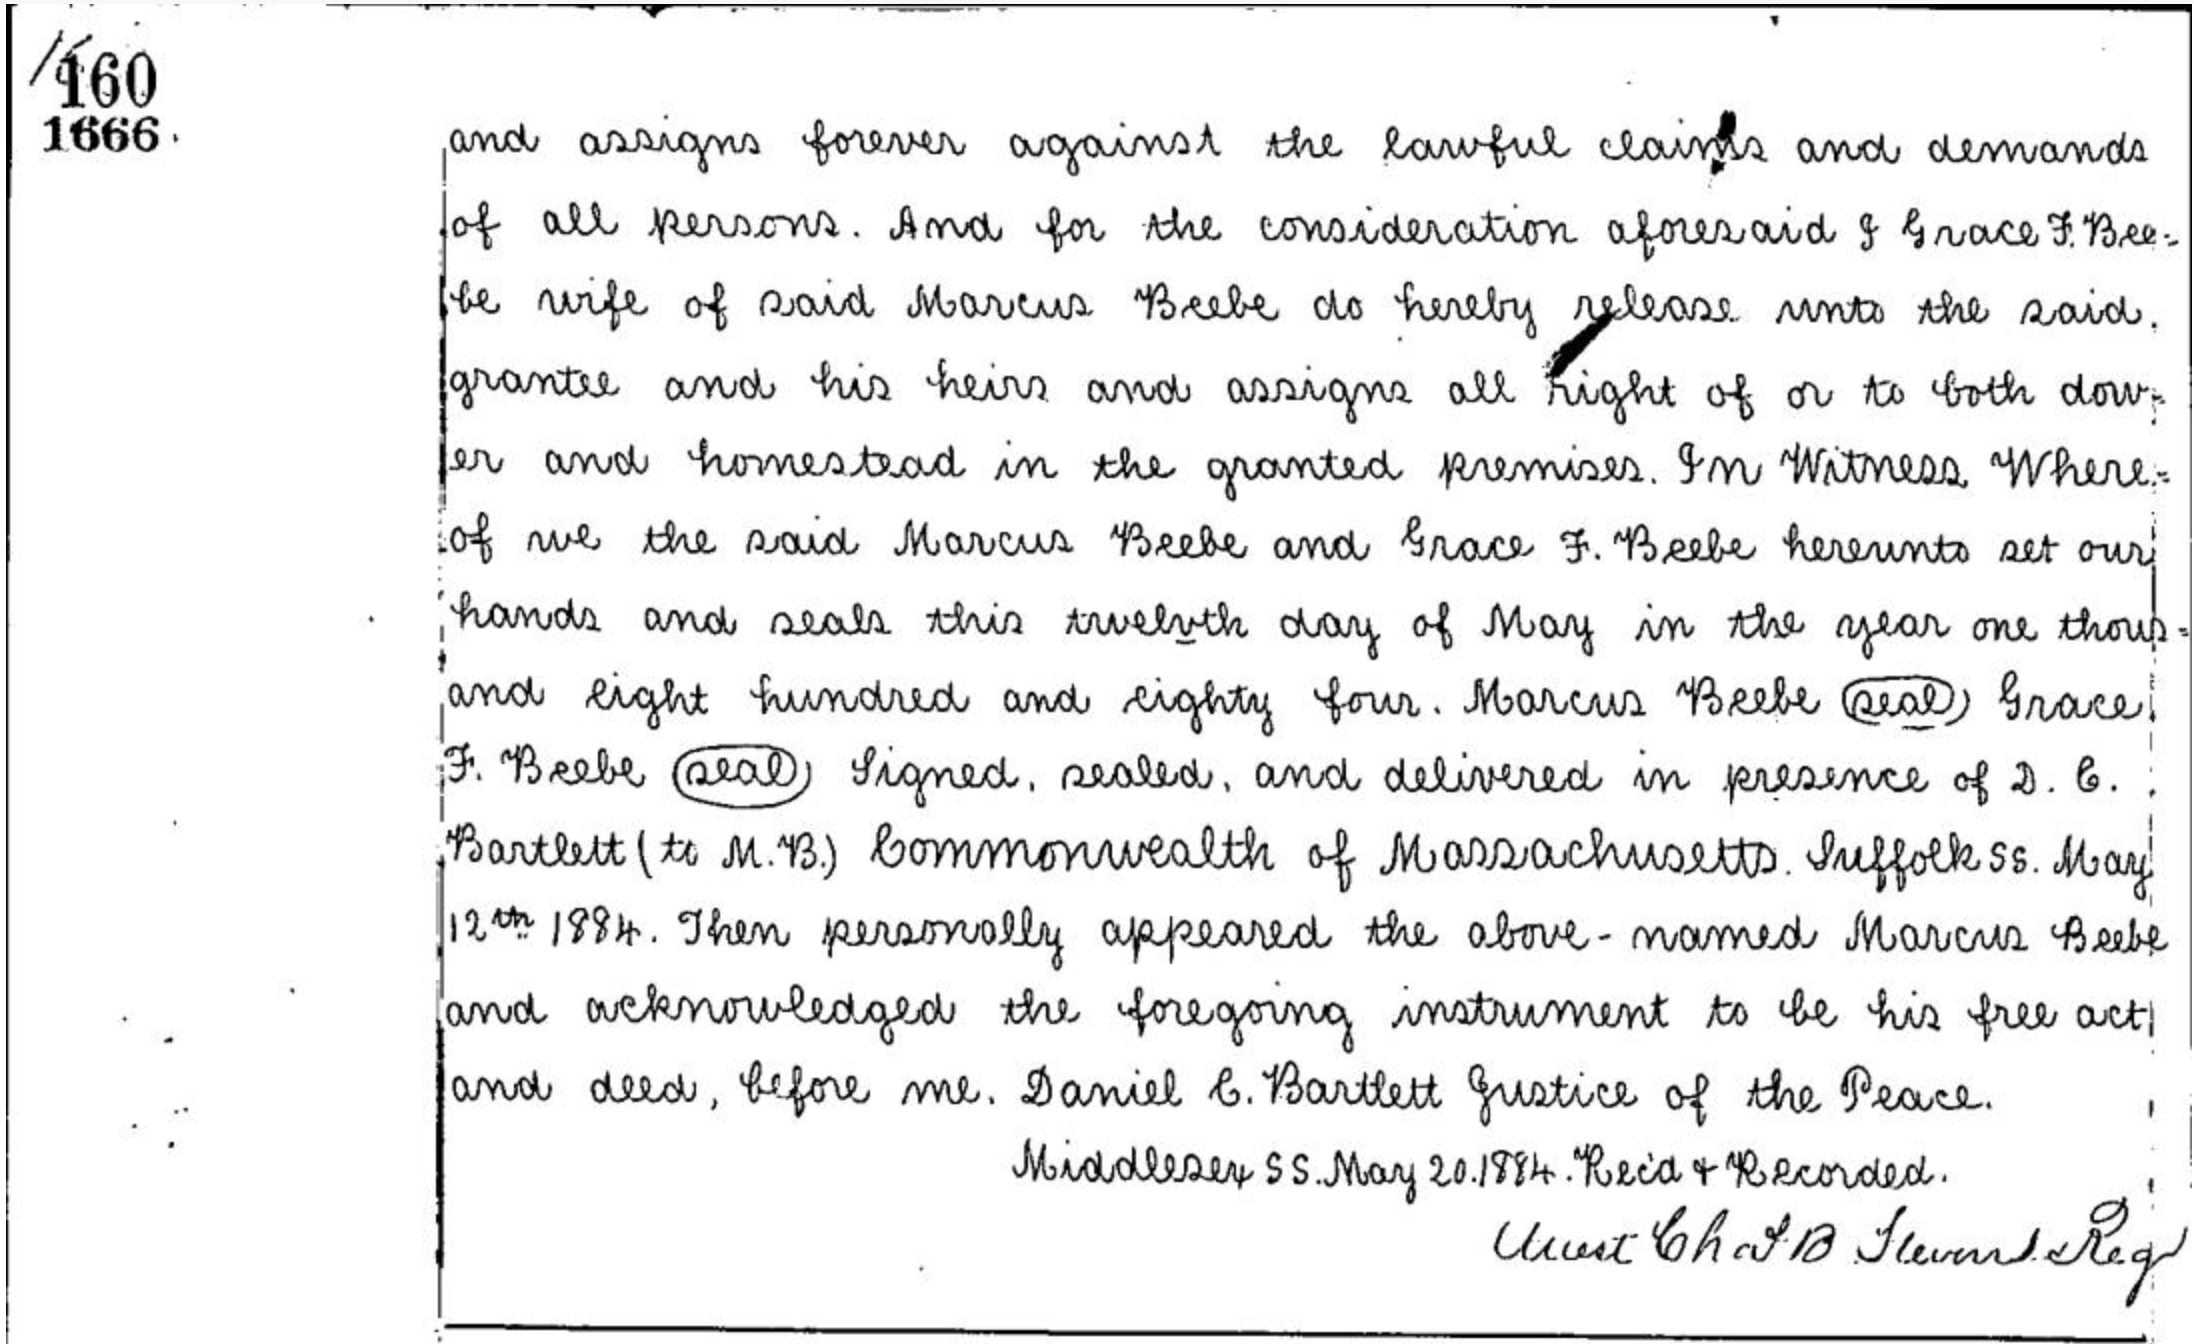 160
1666
and assigns forever against the lawful claims and demands
of all persons. And for the consideration aforesaid I Grace F. Bee=
be wife of said Marcus Beebe do hereby release unto the said
grantee and his heirs and assigns all right of or to both dow=
er and homestead in the granted premises. In Witness Where=
of we the said Marcus Beebe and Grace F. Beebe hereunto set our
hands and seals this twelvth day of May in the year one thous=
and eight hundred and eighty four. Marcus Beebe (seal) Grace
F. Beebe (seal) Signed, sealed, and delivered in presence of D. C.
Bartlett (to M.B.) Commonwealth of Massachusetts. Suffolk ss. May
12th 1884. Then personally appeared the above-named Marcus Beebe
and acknowledged the foregoing instrument to be his free act
and deed, before me. Daniel C. Bartlett Justice of the Peace.
Middlesex SS. May 20. 1884. Rec'd & Recorded.
Attest Chas B Stevens Reg